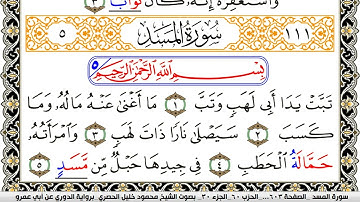 وَاسْتَغْفِرْهُ إِنَّهُ كَانَ تَوَّابًا ٣
١١١ سُورَةُ الْمَسَدِ ٥
بِسْمِ اللَّهِ الرَّحْمَٰنِ الرَّحِيمِ ٥
تَبَّتْ يَدَا أَبِي لَهَبٍ وَتَبَّ ١ مَا أَغْنَىٰ عَنْهُ مَالُهُ وَمَا
كَسَبَ ٢ سَيَصْلَىٰ نَارًا ذَاتَ لَهَبٍ ٣ وَامْرَأَتُهُ
حَمَّالَةُ الْحَطَبِ ٤ فِي جِيدِهَا حَبْلٌ مِّن مَّسَدٍ ٥
سورة المسد _الصفحة ٦٠٣_ الحزب ٦٠_الجزء ٣٠_ بصوت الشيخ محمود خليل الحصري_برواية الدوري عن أبي عمرو